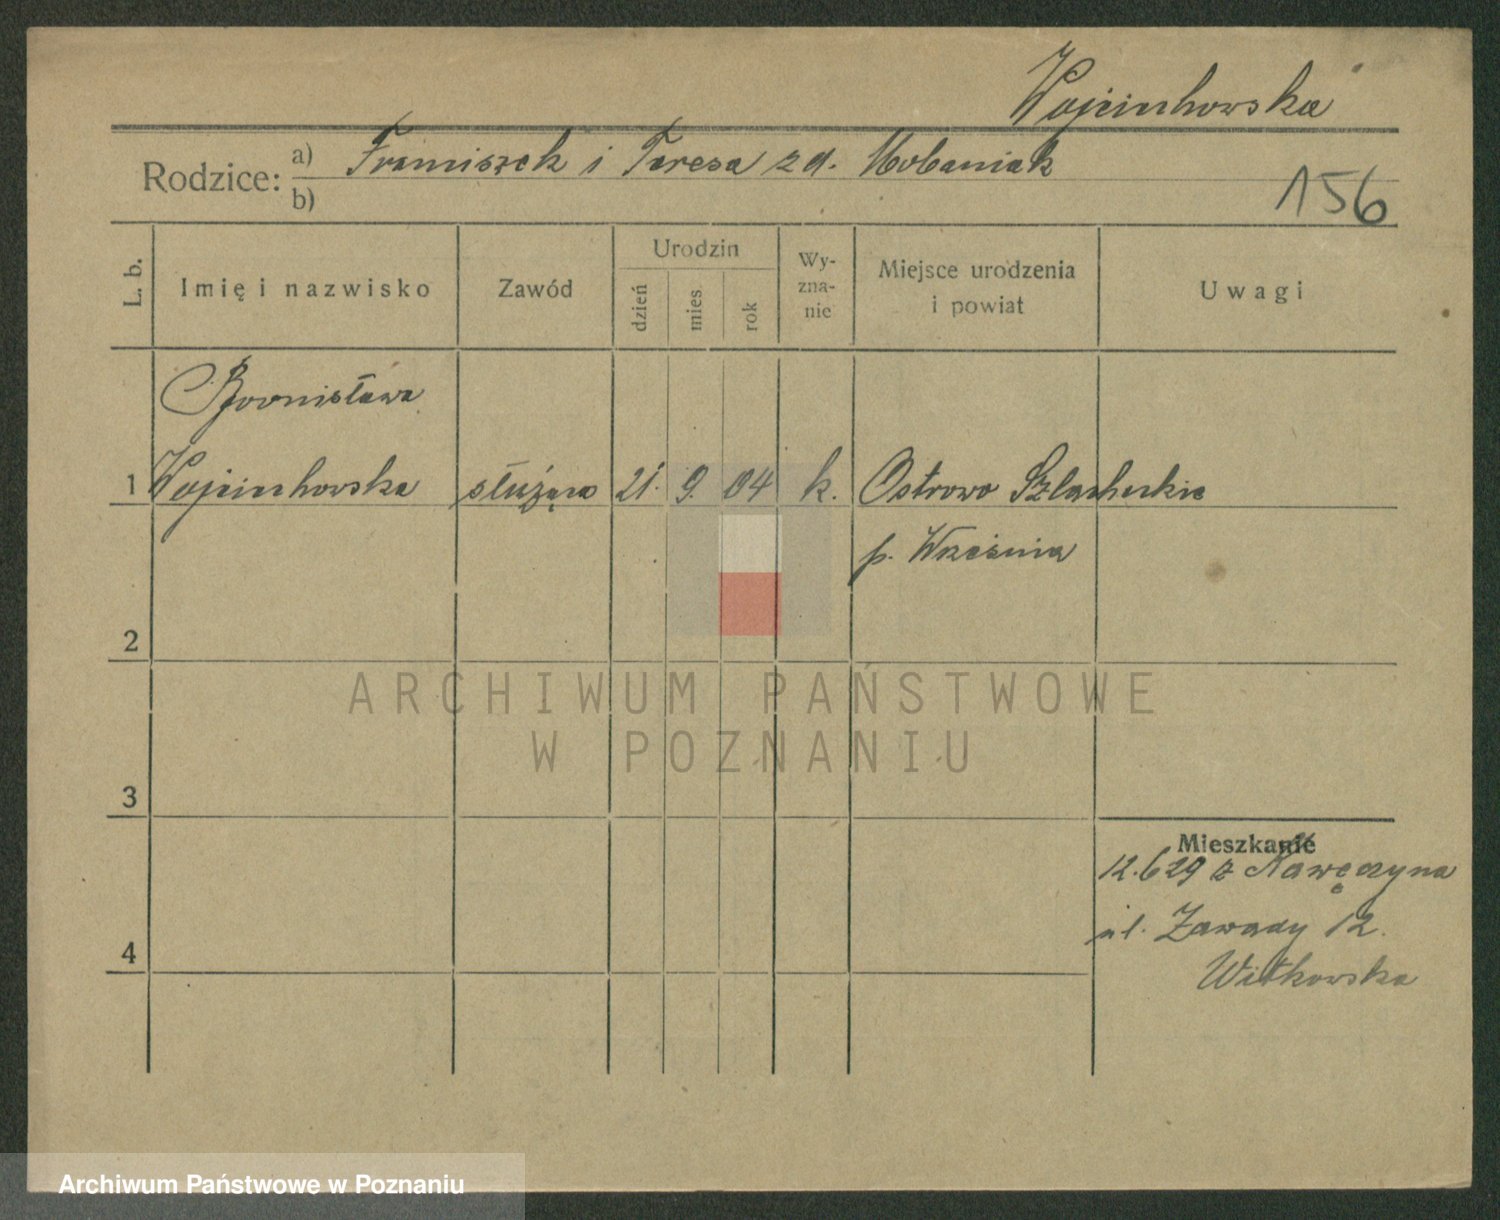 Wojciechowska
Rodzice: a) Franciszek i Teresa zd. Urbaniak
b)
156
L. b.
Imię i nazwisko
Zawód
Urodzin
dzień
mies.
rok
Wy-
zna-
nie
Miejsce urodzenia
i powiat
Uwagi
Bronisława
1 Wojciechowska służąca 21. 9. 04 k. Ostrowo Szlacheckie
p. Września
2
ARCHIWUM PAŃSTWOWE
W POZNANIU
3
Mieszkanie
12.6 29 z Nawęczyna
ul. Zawady 12.
4
Witkowska
Archiwum Państwowe w Poznaniu